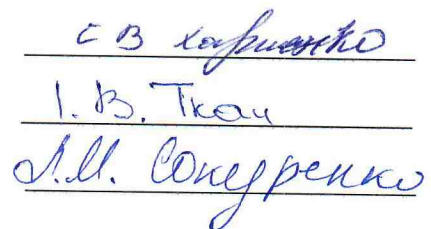 Є В Харченко
І. В. Ткач
Л.М. Сокуренко